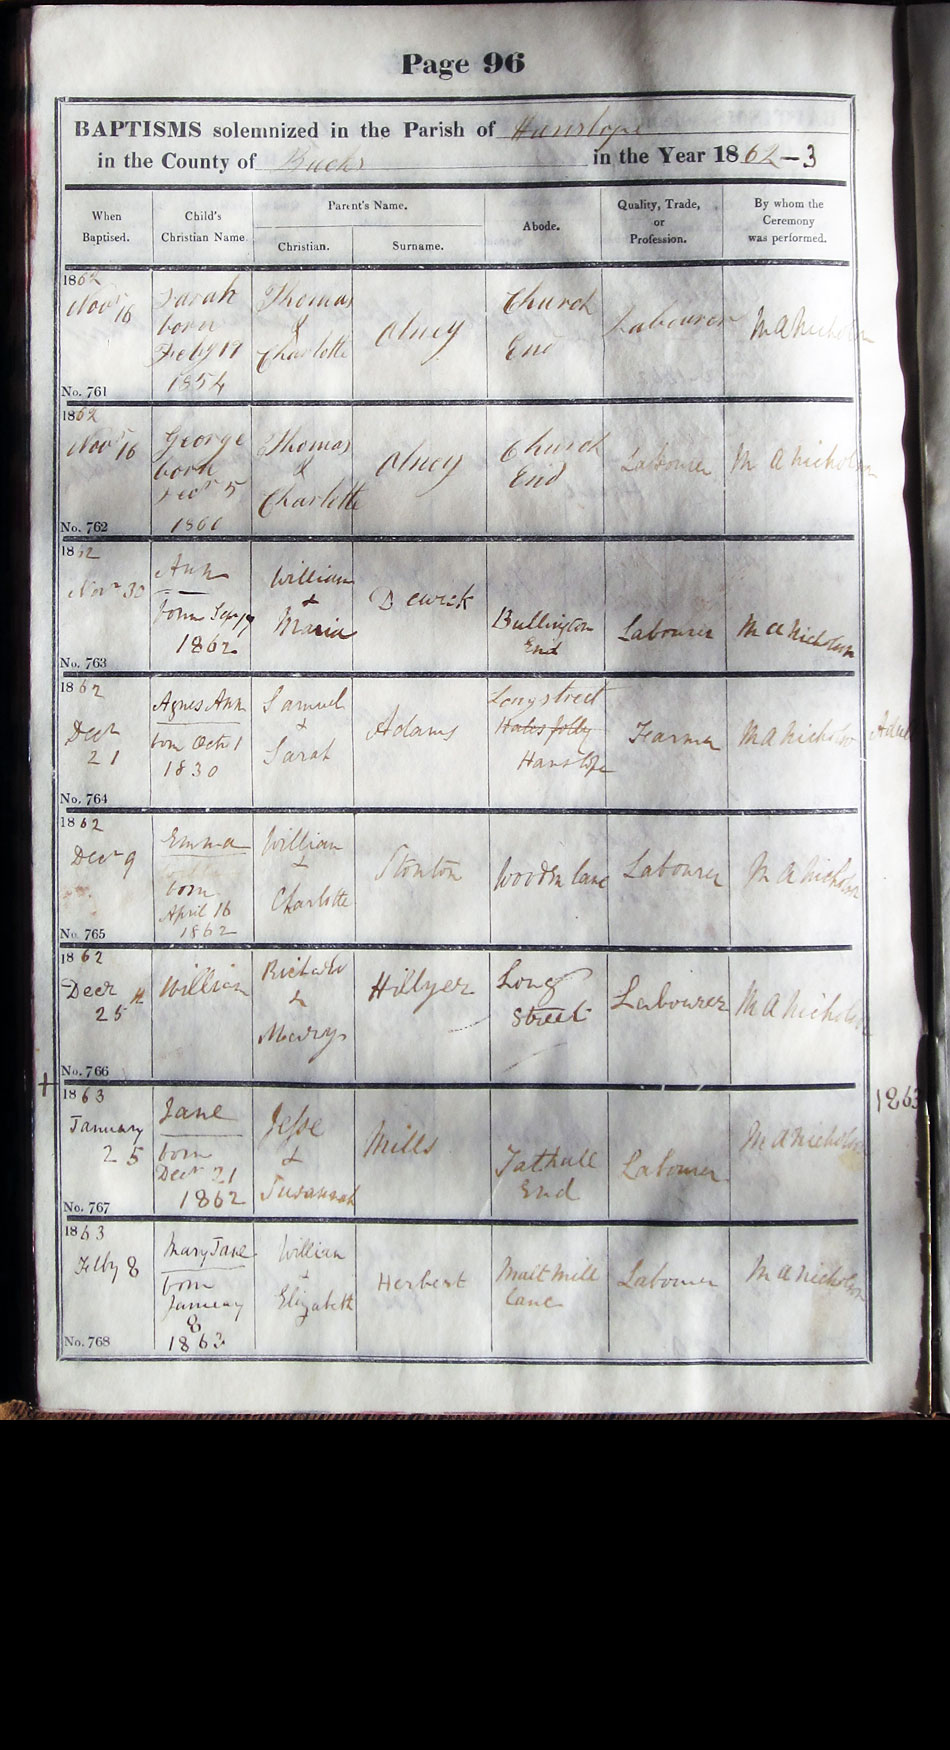 Page 96
BAPTISMS solemnized in the Parish of Hanslope
in the County of Bucks in the Year 1862-3
When Baptised.
Child's Christian Name
Parent's Name.
Christian.
Surname.
Abode.
Quality, Trade, or Profession.
By whom the Ceremony was performed.
1862
Novr 16
No. 761
Sarah
born
Feby 19
1854
Thomas
&
Charlotte
Olney
Church
End
Labourer
M A Nicholson
1862
Novr 16
No. 762
George
born
5
1860
Thomas
&
Charlotte
Olney
Church
End
Labourer
M A Nicholson
1862
Novr 30
No. 763
Ann
born
1862
William
&
Maria
Dewick
Bullington
End
Labourer
M A Nicholson
1862
Decr
21
No. 764
Agnes Ann
born Octr 1
1830
Samuel
&
Sarah
Adams
Longstreet
Hales folly
Hanslope
Farmer
M A Nicholson
Adult
1862
Decr 9
No. 765
Emma
born
April 16
1862
William
&
Charlotte
Stonton
Wooden lane
Labourer
M A Nicholson
1862
Decr
25
No. 766
William
Richard
&
Mary
Hillyer
Long
Street
Labourer
M A Nicholson
+
1863
January
25
No. 767
Jane
born
Decr 21
1862
Jesse
&
Susannah
Mills
Tathall
End
Labourer
M A Nicholson
1863
1863
Feby 8
No. 768
Mary Jane
born
January
8
1863
William
&
Elizabeth
Herbert
Malt Mill
lane
Labourer
M A Nicholson